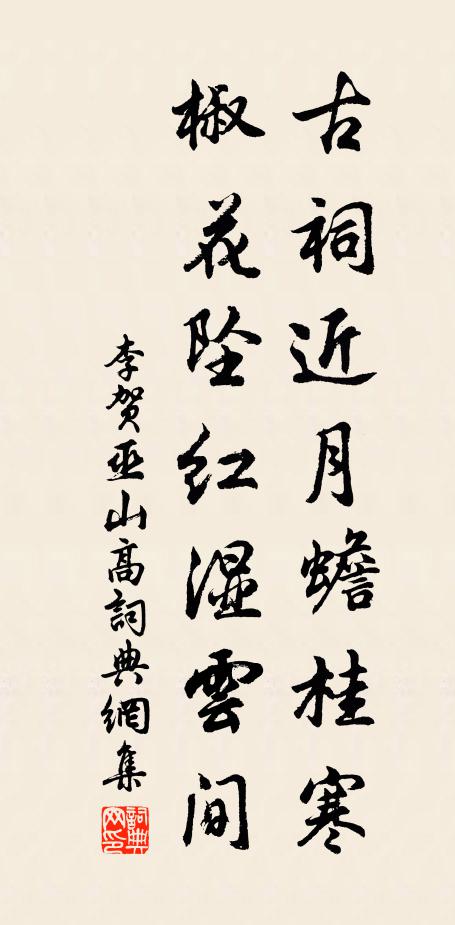 古祠近月蟾桂寒
椒花坠红湿雲间
李贺巫山高詞典網集
詞典网印